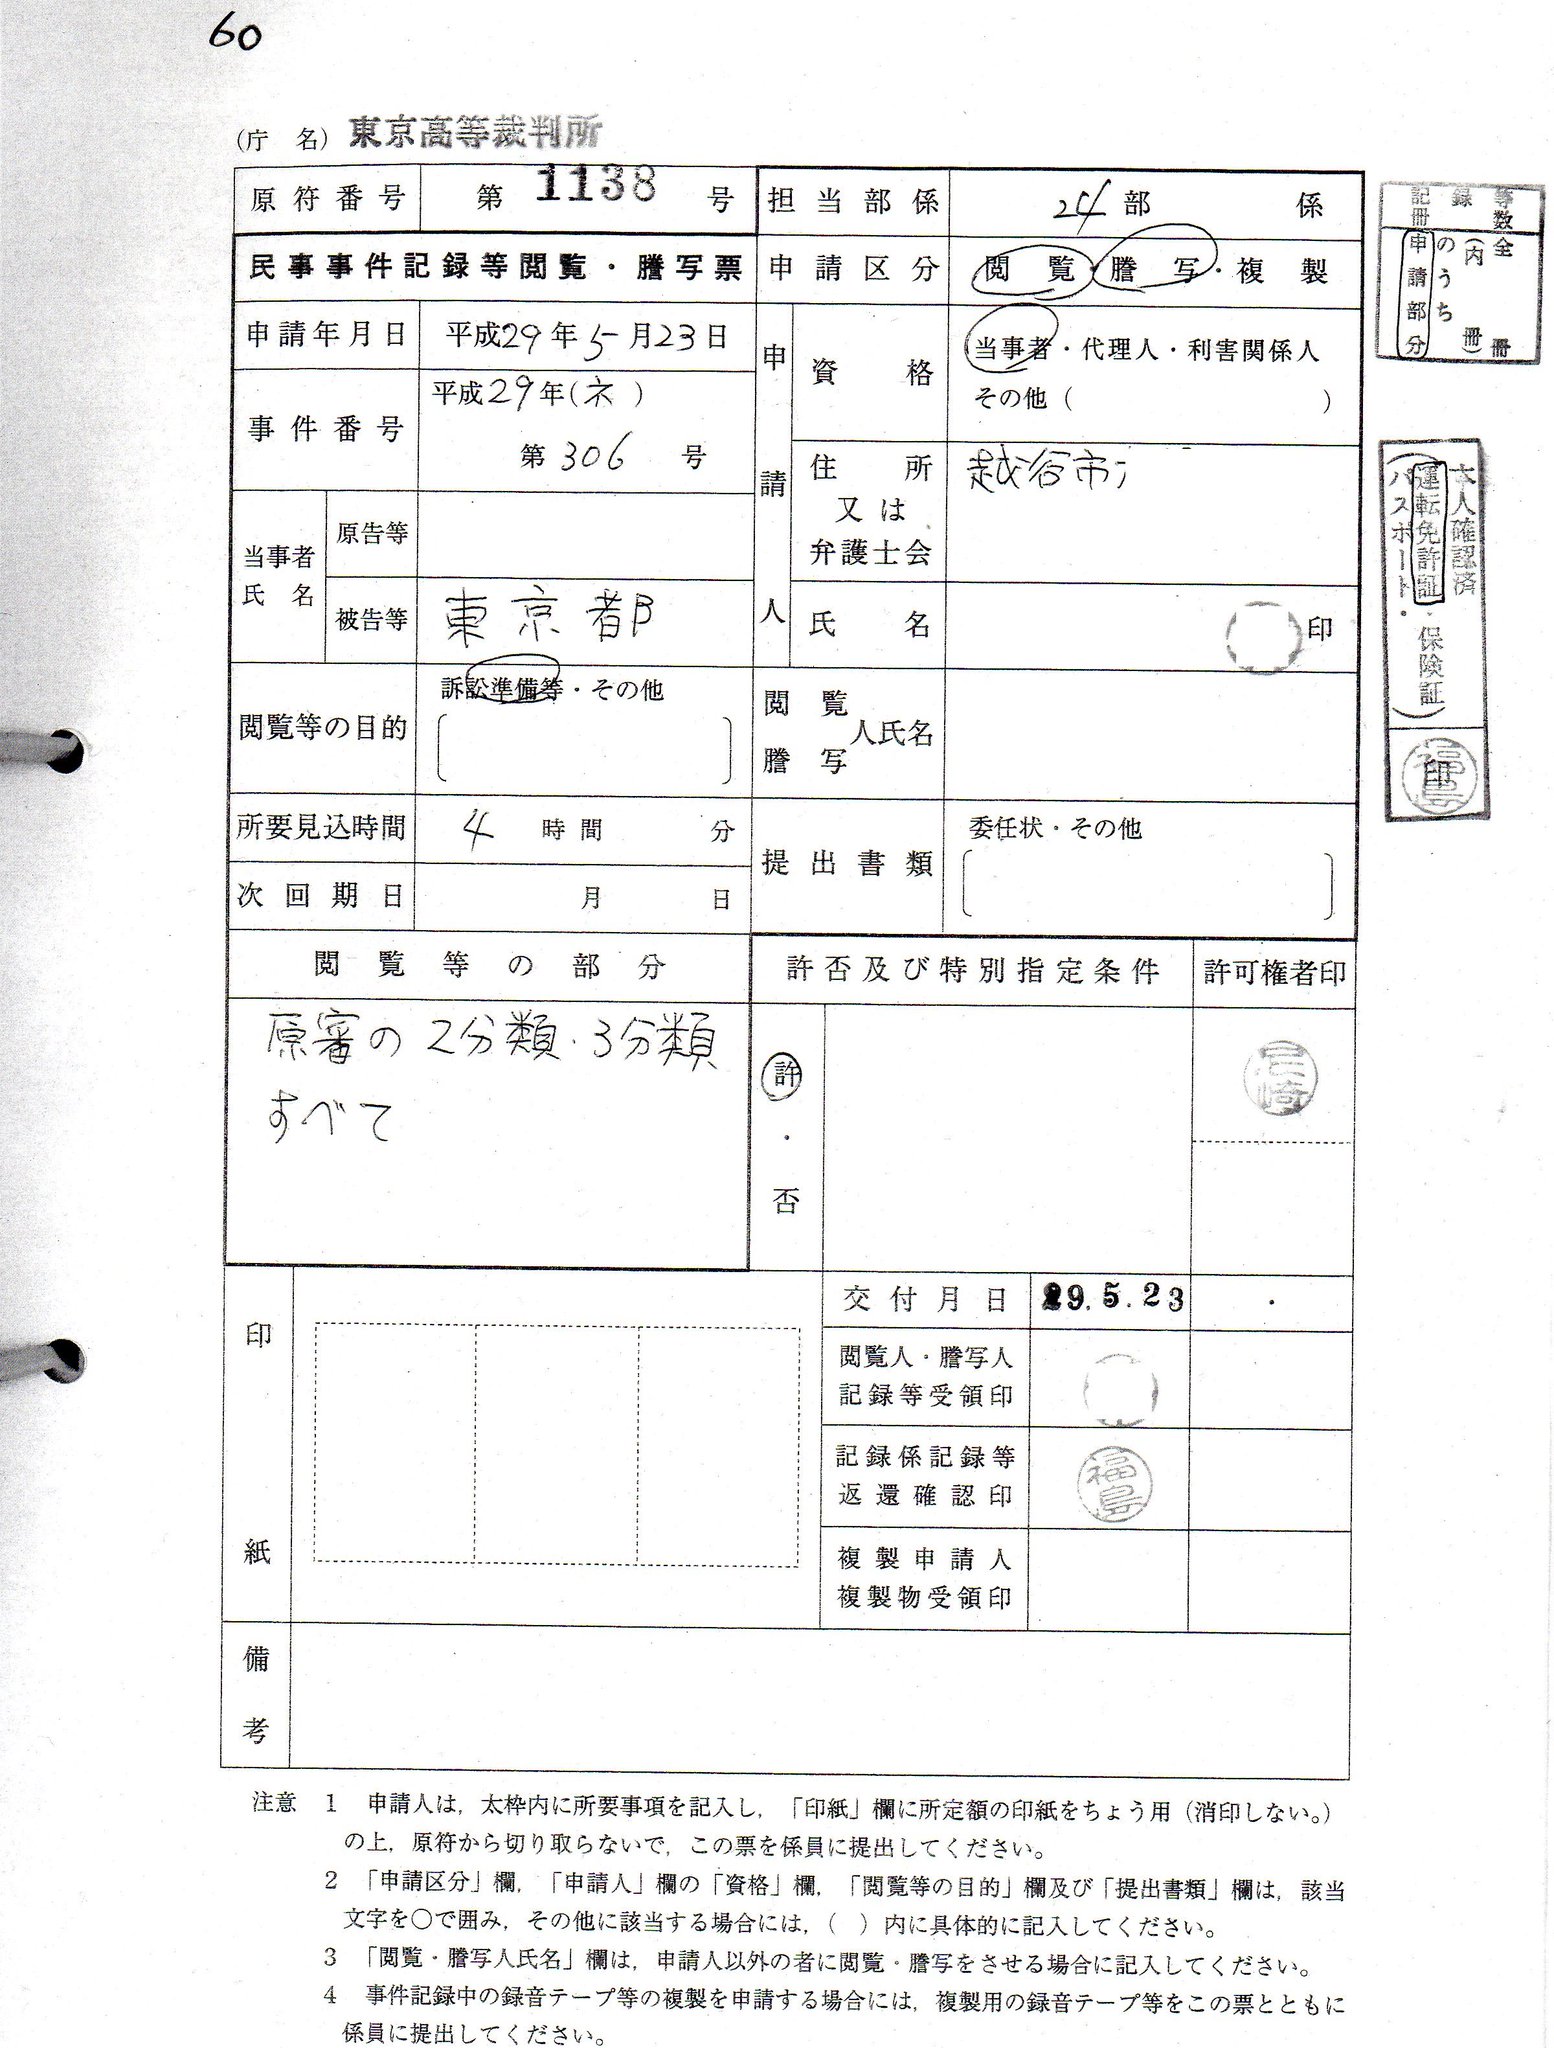 60
(庁 名) 東京高等裁判所
原符番号 第 1138 号
担当部係 24部 係
民事事件記録等閲覧・謄写票
申請区分 閲覧・謄写・複製
申請年月日 平成29年5月23日
事件番号 平成29年(ネ)
第306号
当事者氏名
原告等
被告等 東京都
申請人
資格 当事者・代理人・利害関係人
その他( )
住所
又は
弁護士会
越谷市
氏名 印
閲覧等の目的 訴訟準備等・その他
閲覧
謄写
人氏名
所要見込時間 4 時間 分
次回期日 月 日
提出書類 委任状・その他
閲覧等の部分
原審の2分類・3分類
すべて
許否及び特別指定条件
許可権者印
許・否
印紙
交付月日 29.5.23 ・
閲覧人・謄写人
記録等受領印
記録係記録等
返還確認印
福島
複製申請人
複製物受領印
備考
記録等
冊数
全 冊
(内 冊)
のうち
申請部分
本人確認済
(運転免許証・保険証
パスポート・ )
印
福島
注意 1 申請人は,太枠内に所要事項を記入し,「印紙」欄に所定額の印紙をちょう用(消印しない。)
の上,原符から切り取らないで,この票を係員に提出してください。
2 「申請区分」欄,「申請人」欄の「資格」欄,「閲覧等の目的」欄及び「提出書類」欄は,該当
文字を○で囲み,その他に該当する場合には,( )内に具体的に記入してください。
3 「閲覧・謄写人氏名」欄は,申請人以外の者に閲覧・謄写をさせる場合に記入してください。
4 事件記録中の録音テープ等の複製を申請する場合には,複製用の録音テープ等をこの票とともに
係員に提出してください。